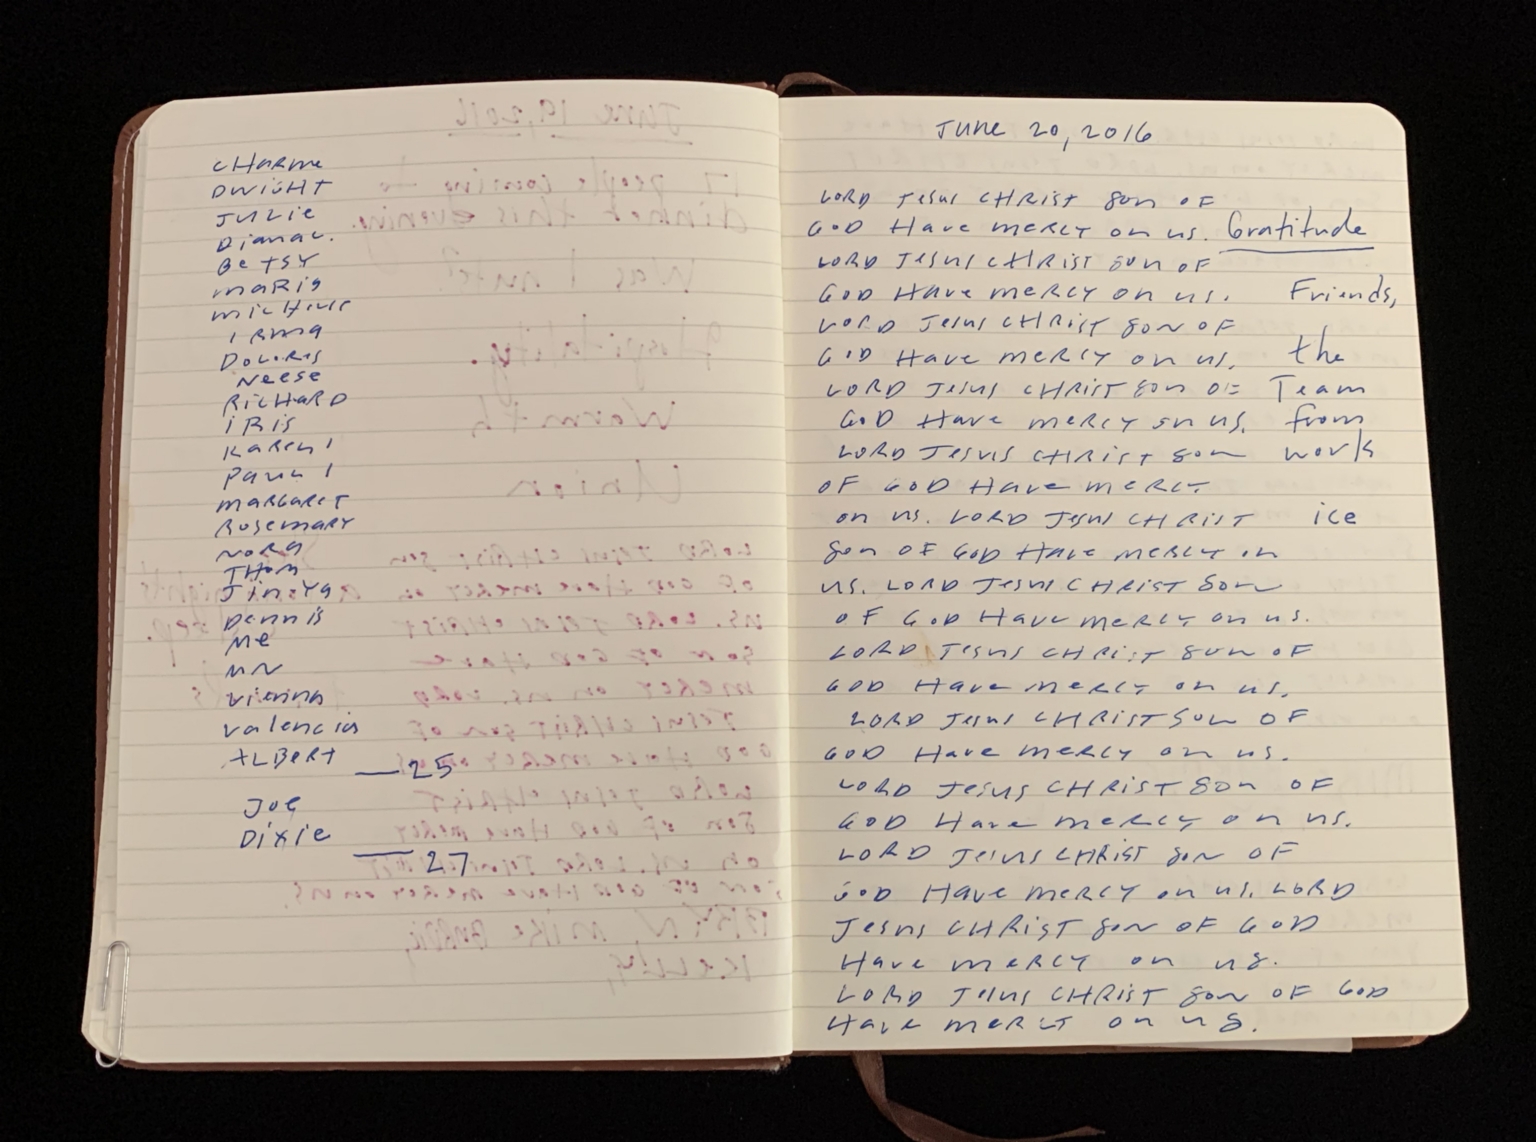 CHARME
DWIGHT
JULIE
Diana L.
BETSY
MARIA
MICHELLE
IRMA
DOLORES
NEESE
RICHARD
IRIS
KAREN I
PAUL I
MARGARET
ROSEMARY
NORA
THOM
JINEYA
DENNIS
ME
MN
Vienna
Valencia
ALBERT — 25
JOE
DIXIE
— 27
JUNE 20, 2016
LORD JESUS CHRIST SON OF
GOD HAVE MERCY ON US. Gratitude
LORD JESUS CHRIST SON OF
GOD HAVE MERCY ON US. Friends,
LORD JESUS CHRIST SON OF
GOD HAVE MERCY ON US. the
LORD JESUS CHRIST SON OF Team
GOD HAVE MERCY ON US. from
LORD JESUS CHRIST SON work
OF GOD HAVE MERCY
ON US. LORD JESUS CHRIST ice
SON OF GOD HAVE MERCY ON
US. LORD JESUS CHRIST SON
OF GOD HAVE MERCY ON US.
LORD JESUS CHRIST SON OF
GOD HAVE MERCY ON US.
LORD JESUS CHRIST SON OF
GOD HAVE MERCY ON US.
LORD JESUS CHRIST SON OF
GOD HAVE MERCY ON US.
LORD JESUS CHRIST SON OF
GOD HAVE MERCY ON US. LORD
JESUS CHRIST SON OF GOD
HAVE MERCY ON US.
LORD JESUS CHRIST SON OF GOD
HAVE MERCY ON US.